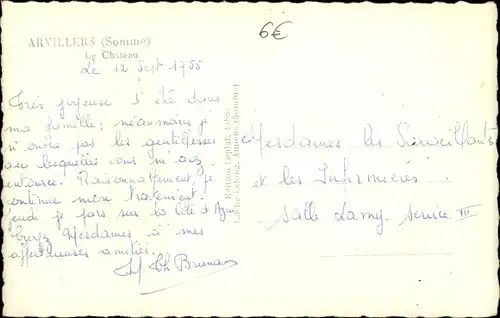 6€
ARVILLERS (Somme)
Le Château
Le 12 Sept 1955
Très joyeuse d'été dans
ma famille; néanmoins je
n'oublie pas les gentillesses
avec lesquelles vous m'avez
entourée. Raisonnablement je
continue mon traitement.
Jeudi je pars sur la Côte d'Azur
Croyez Mesdames à mes
affectueuses amitiés.
M Th Bruneau
Mesdames les Surveillantes
et les Infirmières
Salle Lamy. Service III
Edition
Amiens (Somme)